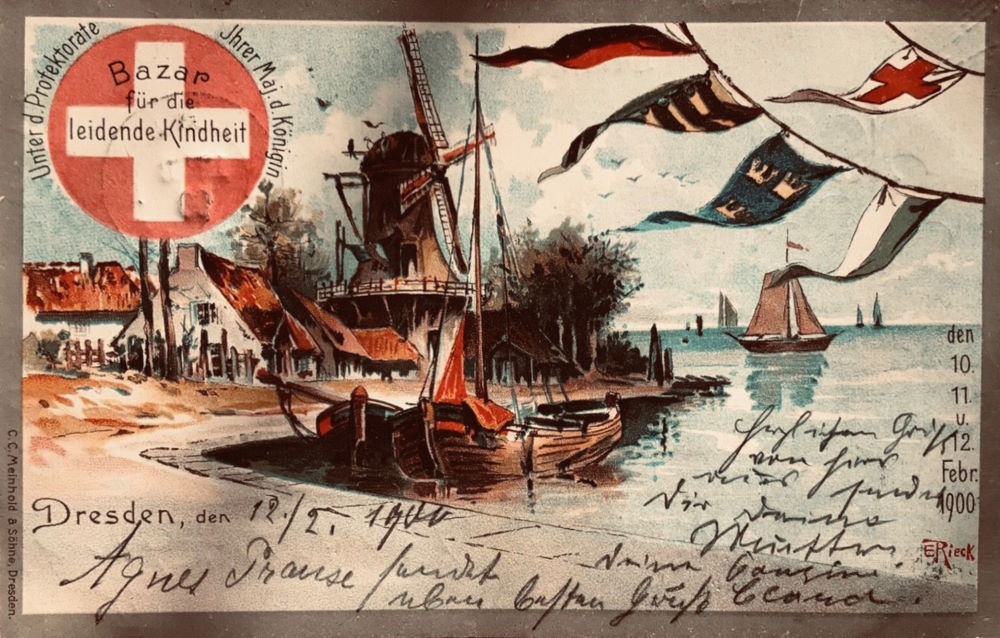 Unter d. Protektorate
Jhrer Maj. d. Königin
Bazar
für die
leidende Kindheit
den
10.
11.
u.
12.
Febr.
1900
Herzlichen Gruß
von hier
aus sendet
Dir Deine
Mutter
Dresden, den 12./2. 1900
Agnes Prause sendet
eben besten Gruß
deine
E Rieck
C. C. Meinhold & Söhne, Dresden.